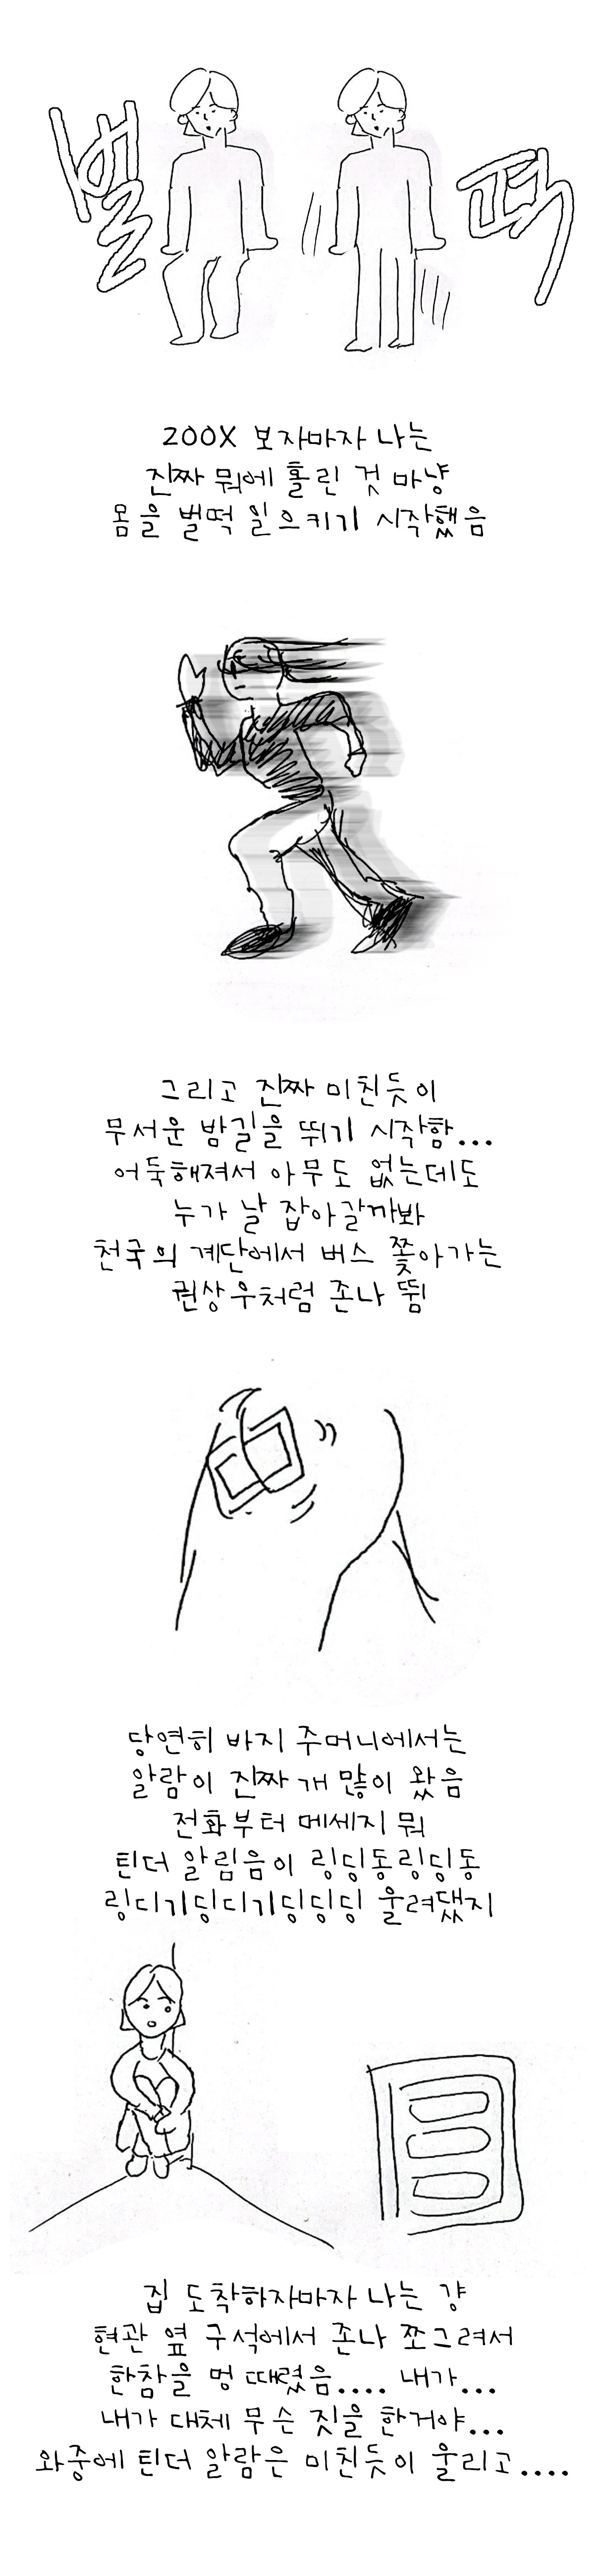 벌떡
200X 보자마자 나는
진짜 뭐에 홀린 것 마냥
몸을 벌떡 일으키기 시작했음
그리고 진짜 미친듯이
무서운 밤길을 뛰기 시작함...
어둑해져서 아무도 없는데도
누가 날 잡아갈까봐
천국의 계단에서 버스 쫓아가는
권상우처럼 존나 뜀
당연히 바지 주머니에서는
알람이 진짜 개 많이 왔음
전화부터 메세지 뭐
틴더 알림음이 링딩동링딩동
링디기딩디기딩딩딩 울려댔지
집 도착하자마자 나는 걍
현관 옆 구석에서 존나 쪼그려서
한참을 멍 때렸음.... 내가...
내가 대체 무슨 짓을 한거야...
와중에 틴더 알람은 미친듯이 울리고....